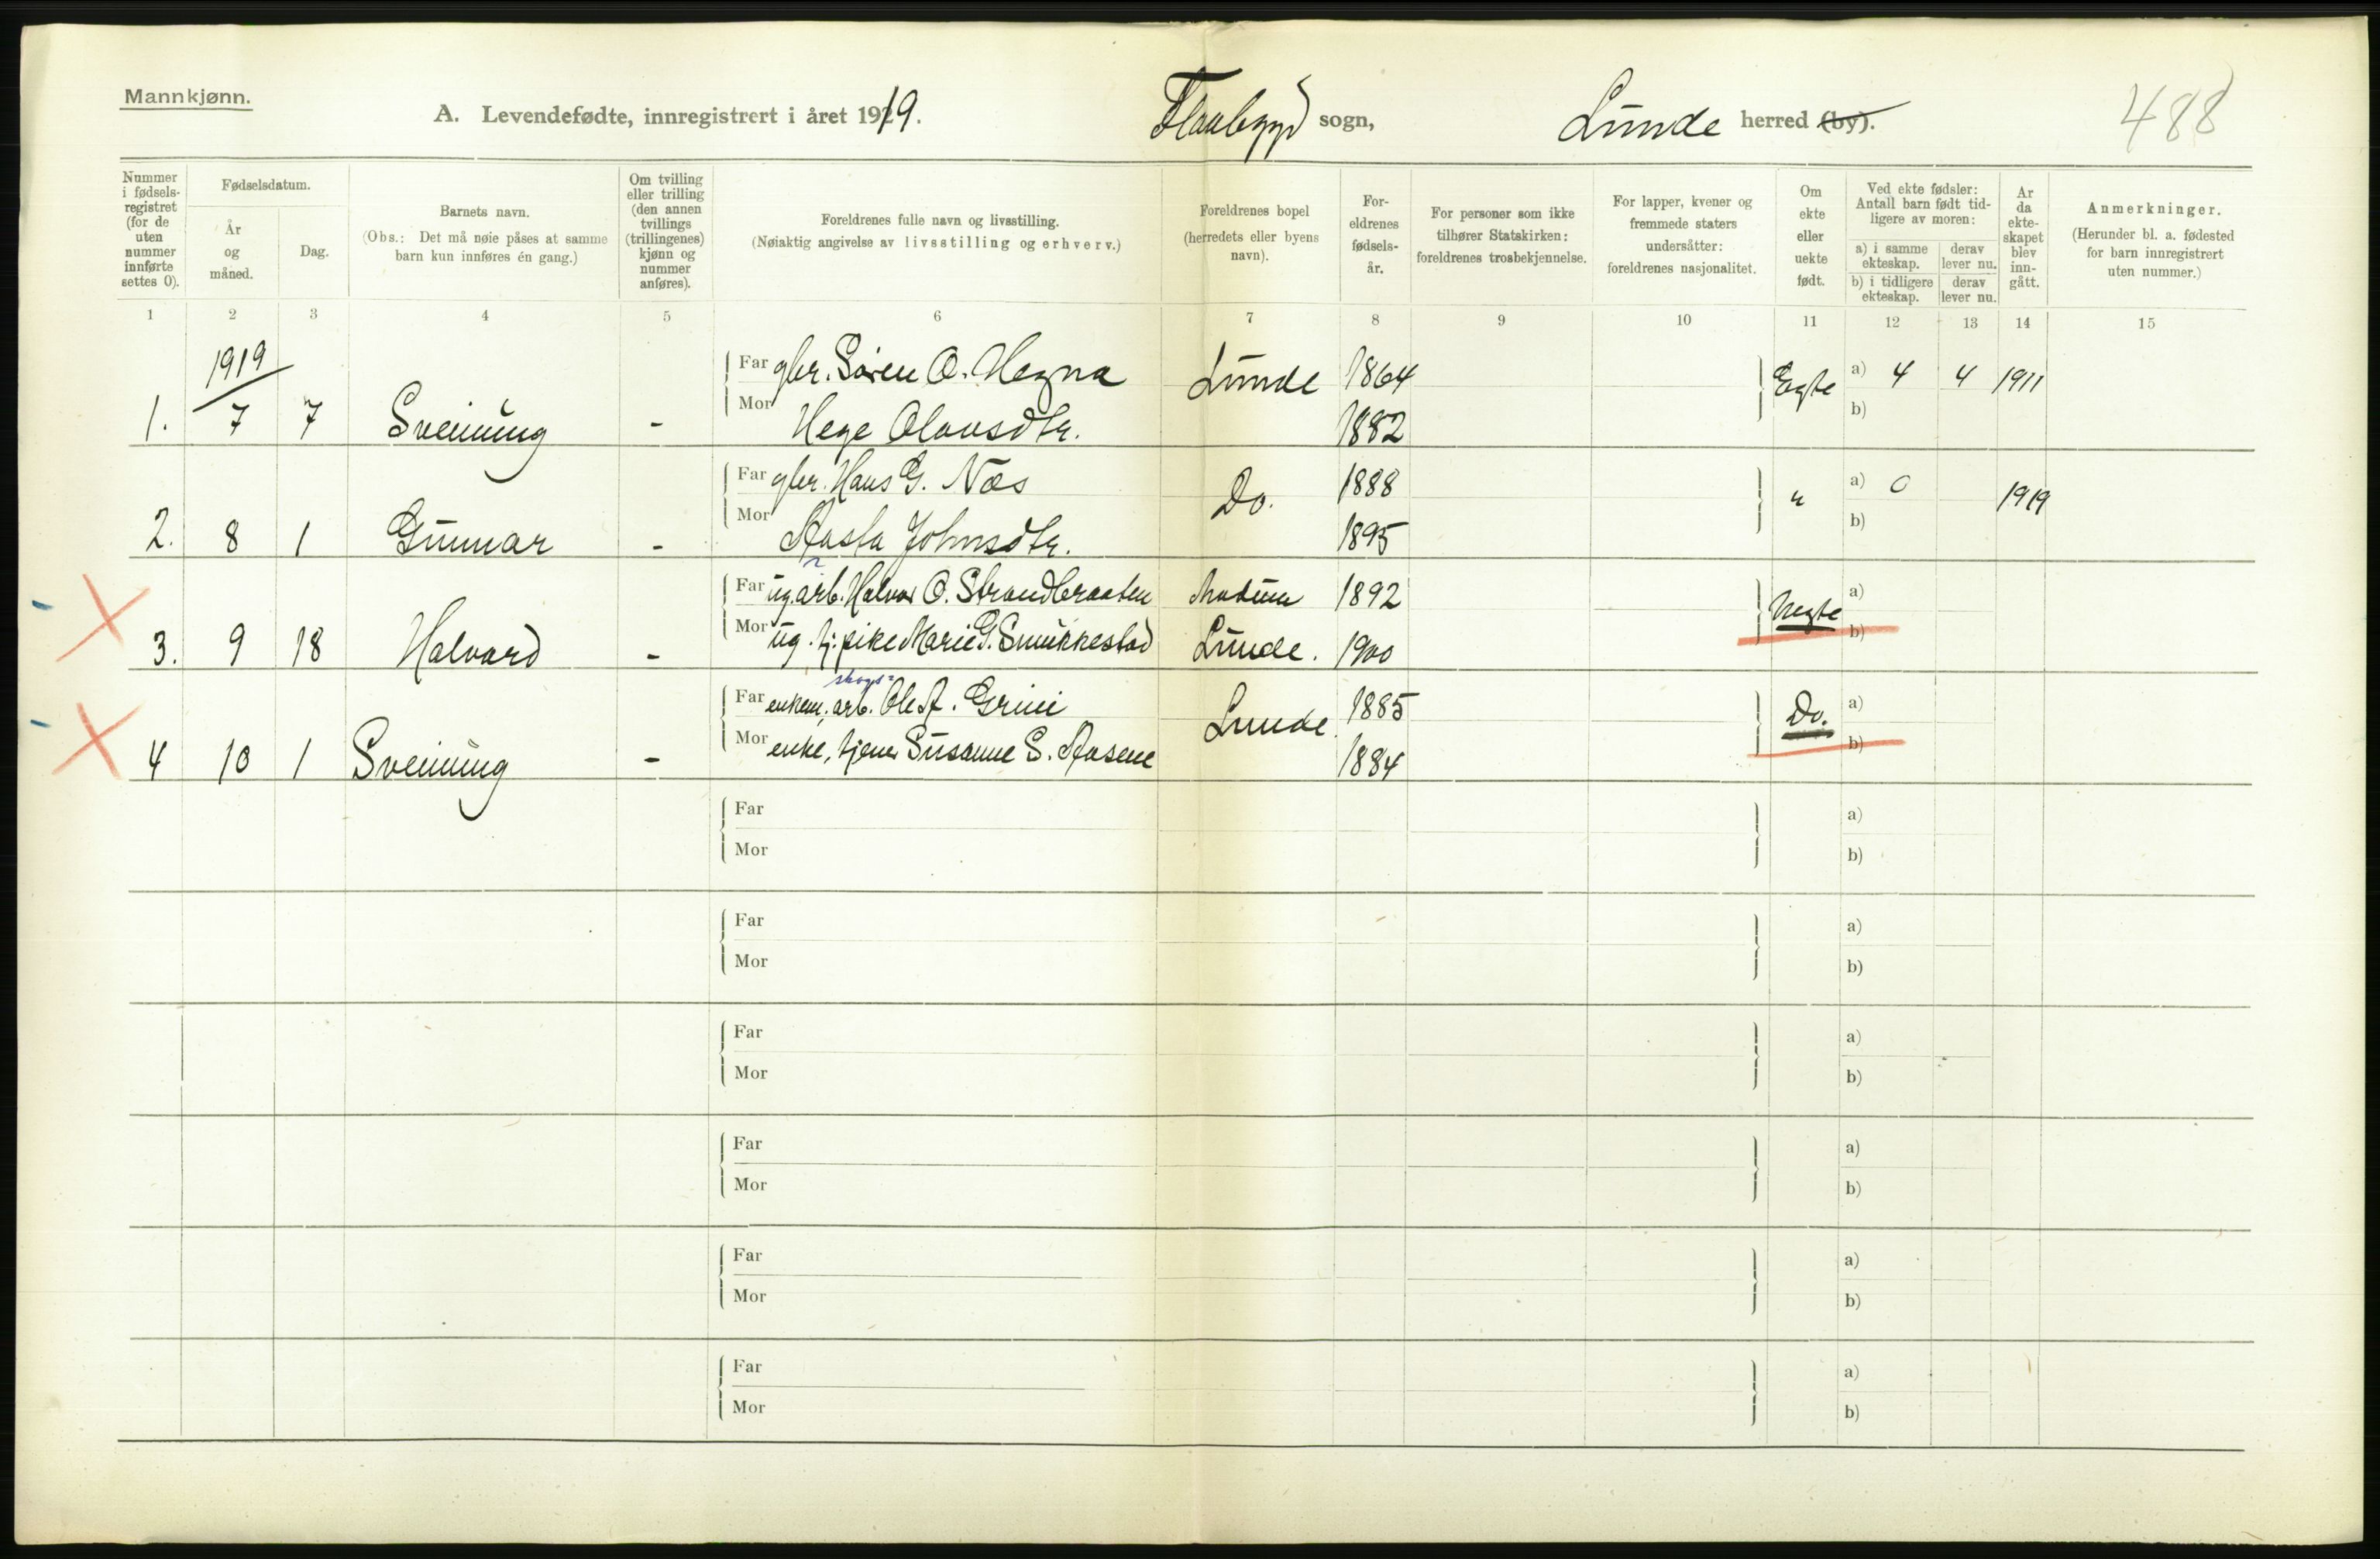 Mannkjønn.
A. Levendefødte, innregistrert i året 1919. Flaabygd sogn, Lunde herred (by). 488
Nummer i fødselsregistret (for de uten nummer innførte settes 0).
Fødselsdatum.
År og måned.
Dag.
Barnets navn.
(Obs.: Det må nøie påses at samme barn kun innføres én gang.)
Om tvilling eller trilling (den annen tvillings (trillingenes) kjønn og nummer anføres).
Foreldrenes fulle navn og livsstilling.
(Nøiaktig angivelse av livsstilling og erhverv.)
Foreldrenes bopel (herredets eller byens navn).
Foreldrenes fødselsår.
For personer som ikke tilhører Statskirken: foreldrenes trosbekjennelse.
For lapper, kvener og fremmede staters undersåtter: foreldrenes nasjonalitet.
Om ekte eller uekte født.
Ved ekte fødsler: Antall barn født tidligere av moren:
a) i samme ekteskap. derav lever nu.
b) i tidligere ekteskap. derav lever nu.
Ar da ekteskapet blev inngått.
Anmerkninger.
(Herunder bl. a. fødested for barn innregistrert uten nummer.)
1 2 3 4 5 6 7 8 9 10 11 12 13 14 15
1919
Far gbr. Søren O. Hegna Lunde 1864 Egte a) 4 4 1911
1. 7 7 Sveinung - Mor Hege Olavsdtr. 1882 b)
Far gbr. Hans G. Næs Do. 1888 " a) 0 1919
2. 8 1 Gunnar - Mor Aasta Johnsdtr. 1895 b)
Far ug. arb. Halvor O. Strandbraaten Modum 1892 Uegte a)
3. 9 18 Halvard - Mor ug. tj. pike Marie G. Smukkestad Lunde. 1900 b)
skogs-
Far enkem. arb. Ole A. Grini Lunde 1885 Do. a)
4 10 1 Sveinung - Mor enke, tjener Susanne S. Aasene 1884 b)
Far a)
Mor b)
Far a)
Mor b)
Far a)
Mor b)
Far a)
Mor b)
Far a)
Mor b)
Far a)
Mor b)